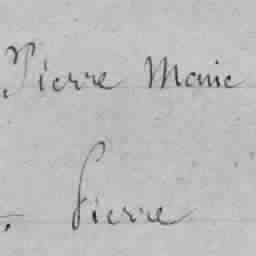 Pierre Marie
Pierre